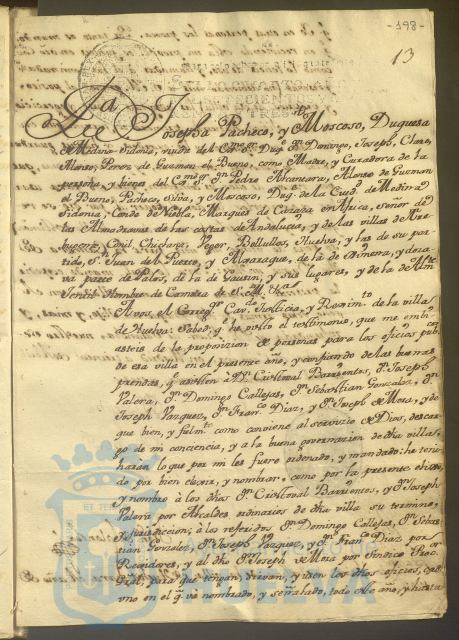 -198-
13
Da. Josepha Pacheco, y Moscoso, Duquesa
de Medina Sidonia, viuda del Domingo, Joseph, Claro,
Alonso, Perez de Guzman el Bueno, como Madre, y Curadora de la
persona, y bienes del Pedro Alcantara, Alonso de Guzman
el Bueno, Pacheco, Silva, y Moscoso, Duq. de la Ciud. de Medina
Sidonia, Conde de Niebla, Marques de Cazaza en Africa, señor de
las Almadravas de las costas de Andalucia, y de las Villas de
Conil, Chiclana, Veger, Bollullos, Huelva, y las de su par-
tido, Sn. Juan del Puerto, y Aljaraque, de la de Ximena, y de la oc-
va parte de Palos, de la de Gaucin, y sus lugares, y de la de
Gentil Hombre de Camara de S. M. &a.
A vos, el Correg. Cav. Justicia, y Regim.to de la villa
de Huelva: Saled, q. he visto el testimonio, que me embi-
asteis de la proposizion de personas para los oficios pub.cos
de esa villa en el presente año, y confiando de las buenas
prendas, q. asisten á Dn. Cristoval Barrientos, Dn. Joseph
Valera, Dn. Domingo Callejas, Dn. Sebastian Gonzalez, Dn.
Joseph Vazquez, Dn. Franco. Diaz, y Dn. Joseph de Mora, y de
que bien, y fielm.te como conviene al servicio de Dios, descar-
go de mi conciencia, y a la buena governacion de dha villa,
harán lo que por mi les fuere ordenado, y mandado: he teni-
do por bien elexir, y nombrar, como por la presente elixo,
y nombro á los dhos Dn. Cristoval Barrientos, y Dn. Joseph
Valera por Alcaldes ordinarios de dha villa su termino,
y jurisdiccion; á los referidos Dn. Domingo Callejas, Dn. Sebas-
tian Gonzalez, Dn. Joseph Vazquez, y Dn. Franco. Diaz por
Regidores, y al dho Dn. Joseph de Mora por Sindico Proc.
Gral. para que tengan, sirvan, y usen los dhos oficios, cada
uno en el q. vá nombrado, y señalado, todo este año, y hasta